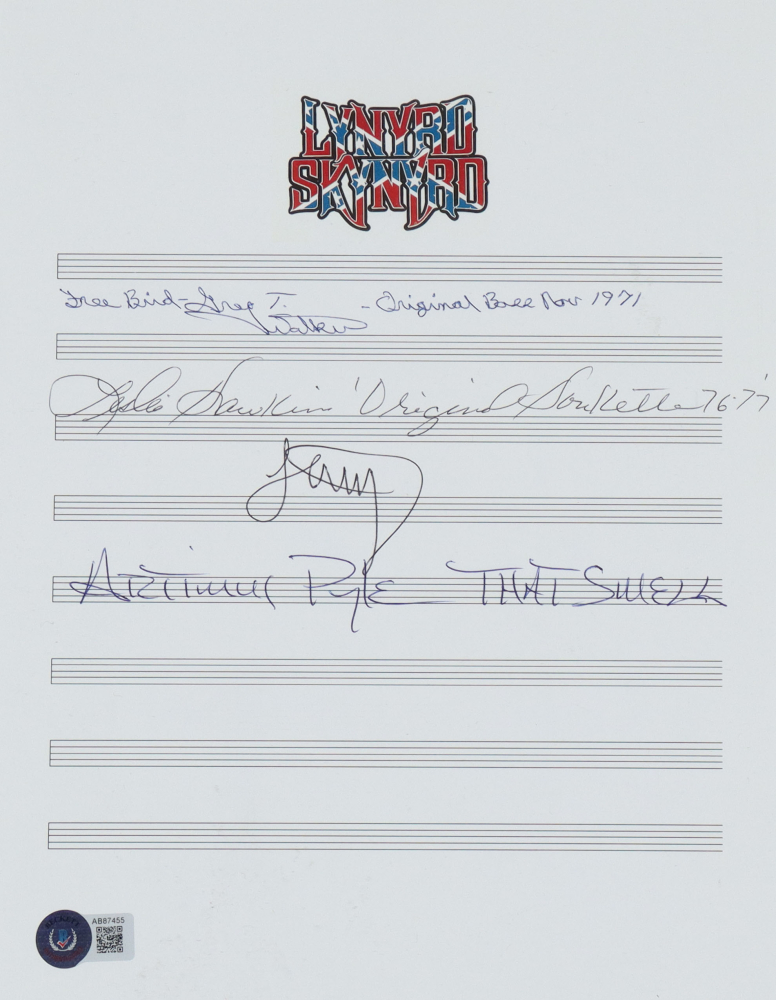 LYNYRD
SKYNYRD
Free Bird - Greg T. Walker - Original Bass Nov 1971
Leslie Hawkins 'Original Honkette 76-77'
Artimus Pyle THAT SMELL
BECKETT
AB87455